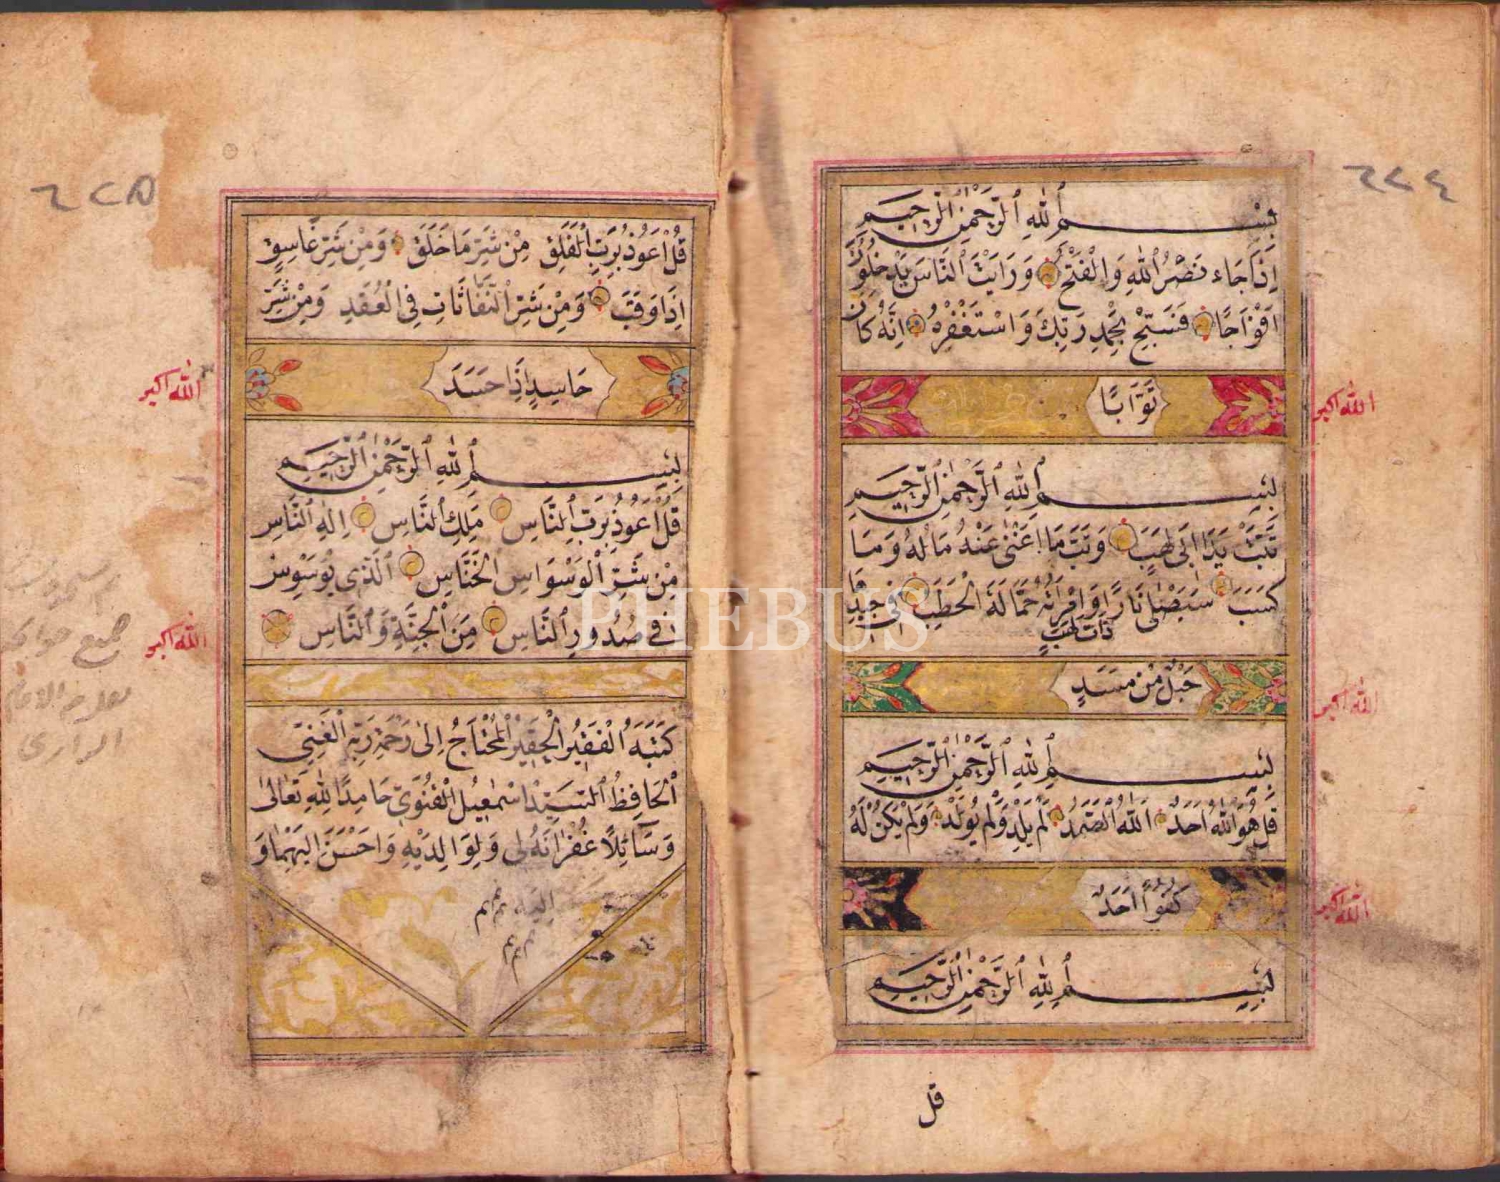 ٢٧٤
بِسْمِ اللّٰهِ الرَّحْمٰنِ الرَّحِيمِ
اِذَا جَاءَ نَصْرُ اللّٰهِ وَالْفَتْحُ وَرَاَيْتَ النَّاسَ يَدْخُلُونَ
اَفْوَاجًا فَسَبِّحْ بِحَمْدِ رَبِّكَ وَاسْتَغْفِرْهُ اِنَّهُ كَانَ
تَوَّابًا
الله اكبر
بِسْمِ اللّٰهِ الرَّحْمٰنِ الرَّحِيمِ
تَبَّتْ يَدَا اَبِى لَهَبٍ وَتَبَّ مَا اَغْنٰى عَنْهُ مَالُهُ وَمَا
كَسَبَ سَيَصْلٰى نَارًا وَامْرَاَتُهُ حَمَّالَةَ الْحَطَبِ فِى جِيدِهَا
ذَاتَ لَهَبٍ
حَبْلٌ مِنْ مَسَدٍ
الله اكبر
بِسْمِ اللّٰهِ الرَّحْمٰنِ الرَّحِيمِ
قُلْ هُوَ اللّٰهُ اَحَدٌ اَللّٰهُ الصَّمَدُ لَمْ يَلِدْ وَلَمْ يُولَدْ وَلَمْ يَكُنْ لَهُ
كُفُوًا اَحَدٌ
الله اكبر
بِسْمِ اللّٰهِ الرَّحْمٰنِ الرَّحِيمِ
قل
٢٧٥
قُلْ اَعُوذُ بِرَبِّ الْفَلَقِ مِنْ شَرِّ مَا خَلَقَ وَمِنْ شَرِّ غَاسِقٍ
اِذَا وَقَبَ وَمِنْ شَرِّ النَّفَّاثَاتِ فِى الْعُقَدِ وَمِنْ شَرِّ
حَاسِدٍ اِذَا حَسَدَ
الله اكبر
بِسْمِ اللّٰهِ الرَّحْمٰنِ الرَّحِيمِ
قُلْ اَعُوذُ بِرَبِّ النَّاسِ مَلِكِ النَّاسِ اِلٰهِ النَّاسِ
مِنْ شَرِّ الْوَسْوَاسِ الْخَنَّاسِ اَلَّذِى يُوَسْوِسُ
فِى صُدُورِ النَّاسِ مِنَ الْجِنَّةِ وَالنَّاسِ
الله اكبر
كَتَبَهُ الْفَقِيرُ الْحَقِيرُ الْمُحْتَاجُ اِلٰى رَحْمَةِ رَبِّهِ الْغَنِىِّ
الْحَافِظُ السَّيِّدْ اسْمٰعِيلُ الْقُنَوِىّ حَامِدًا لِلّٰهِ تَعَالٰى
وَسَآئِلًا غُفْرَانَهُ لِى وَلِوَالِدَيْهِ وَاَحْسَنَ اِلَيْهِمَا وَ
اليه
PHEBUS